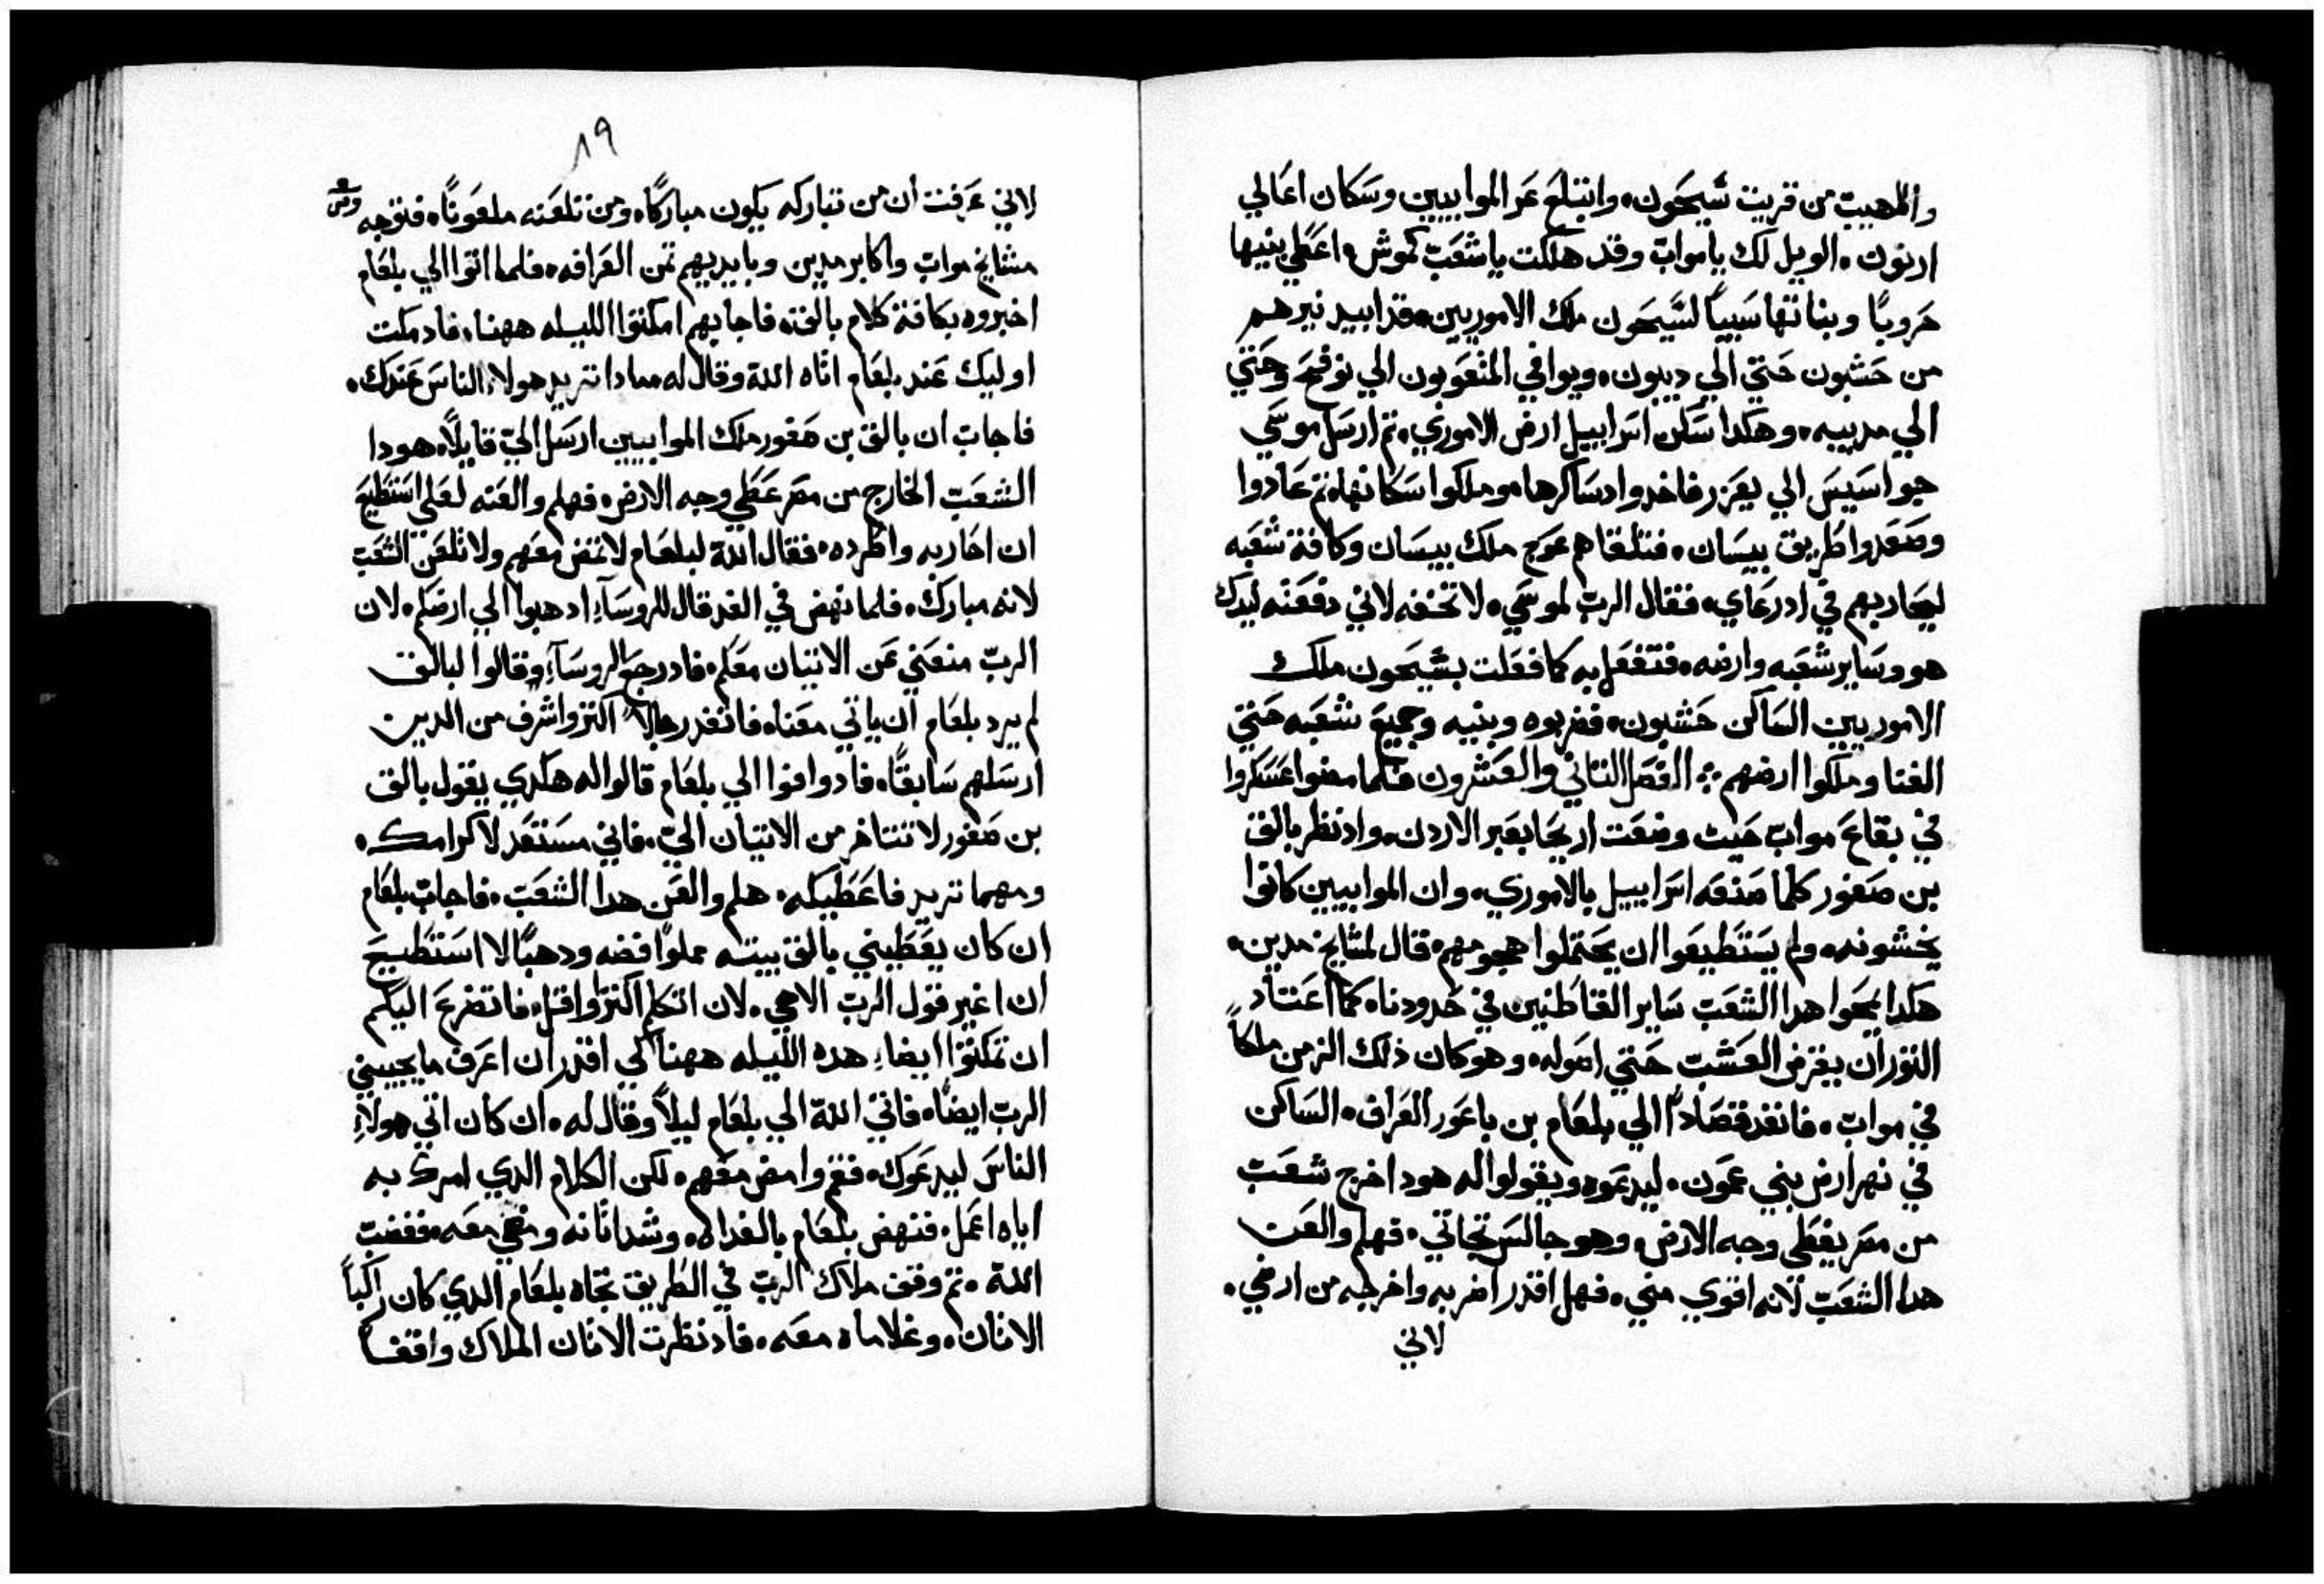 واللهيب من قريت شيحون، وابتلع عر الموابيين وسكان اعالي
ارنون. الويل لك يا مواب وقد هلكت يا شعب كموش، اعطي بنيها
هروبًا وبناتها سبيًا لشيحون ملك الاموريين، قد ابيد نيرهم
من حشبون حتي الي ديبون، ويوافي المتعوبون الي نوفح وحتي
الي مديبه، وهكدا سكن اسراييل ارض الاموري، تم ارسل موسي
جواسيس الي يعزر فاخدوا دساكرها وملكوا سكانها، تم عادوا
وصعدوا طريق بيسان، فتلقاهم عوج ملك بيسان وكافة شعبه
ليحاربهم في ادرعاي، فقال الرب لموسي، لا تخفه لاني دفعته ليدك
هو وساير شعبه وارضه، فتفعل به كما فعلت بشيحون ملك
الاموريين الساكن حشبون، فضربوه وبنيه وجميع شعبه حتي
الفنا وملكوا ارضهم ؞ الفصل التاني والعشرون فلما مضوا عسكروا
في بقاع مواب حيت وضعت اريحا بعبر الاردن، واد نظر بالق
بن صفور كلما صنعه اسراييل بالاموري، وان الموابيين كانوا
يخشونه، ولم يستطيعوا ان يحتملوا هجومهم، قال لمشايخ مدين،
هكدا يمحوا هدا الشعب ساير القاطنين في حدودنا، كما اعتاد
التور ان يقرض العشب حتي اصوله، وهو كان ذلك الزمن ملكًا
في مواب، فانفد قصادًا الي بلعام بن باعور العراف، الساكن
في نهر ارض بني عمون، ليدعوه ويقولوا له هودا خرج شعب
من مصر يغطي وجه الارض، وهو جالس تجاتي، فهلم والعن
هدا الشعب لانه اقوي مني، فهل اقدر اضربه واخرجه من ارضي،
لاني
٨٩
لاني عرفت ان من تباركه يكون مباركًا، ومن تلعنه ملعونًا، فتوجه
مشايخ مواب واكابر مدين وبايديهم تمن العرافه، فلما اتوا الي بلعام
اخبروه بكافة كلام بالق، فاجابهم امكتوا الليله ههنا، فاد مكت
اوليك عند بلعام اتاه الله وقال له مادا تريد هولاء الناس عندك،
فاجاب ان بالق بن صفور ملك الموابيين ارسل الي قايلًا، هودا
الشعب الخارج من مصر غطي وجه الارض، فهلم والعنه لعلي استطيع
ان احاربه واطرده، فقال الله لبلعام لا تمض معهم ولا تلعن الشعب
لانه مبارك، فلما نهض في الغد قال للروساء ادهبوا الي ارضكم، لان
الرب منعني عن الاتيان معكم، فاد رجع الروساء وقالوا لبالق
لم يرد بلعام ان ياتي معنا، فانفد رجالًا اكتر واشرف من الدين
ارسلهم سابقًا، فاد وافوا الي بلعام قالوا له هكدي يقول بالق
بن صفور لا تتتاخر من الاتيان الي، فاني مستعد لاكرامك،
ومهما تريد فاعطيكه، هلم والعن هدا الشعب، فاجاب بلعام
ان كان يعطيني بالق بيته مملوًا فضه ودهبًا لا استطيع
ان اغير قول الرب الاهي، لان اتكلم اكتر او اقل، فاتضرع اليكم
ان تمكتوا ايضاء هده الليله ههنا كي اقدر ان اعرف ما يجيبني
الرب ايضًا، فاتي الله الي بلعام ليلًا وقال له، ان كان اتي هولاء
الناس ليدعوك، فقم وامض معهم، لكن الكلام الدي امرك به
اياه اعمل، فنهض بلعام بالغداه، وشد اتانه ومضي معه، فغضب
الله، تم وقف ملاك الرب في الطريق تجاه بلعام الدي كان راكبًا
الاتان، وغلاماه معه، فاد نظرت الاتان الملاك واقفًا